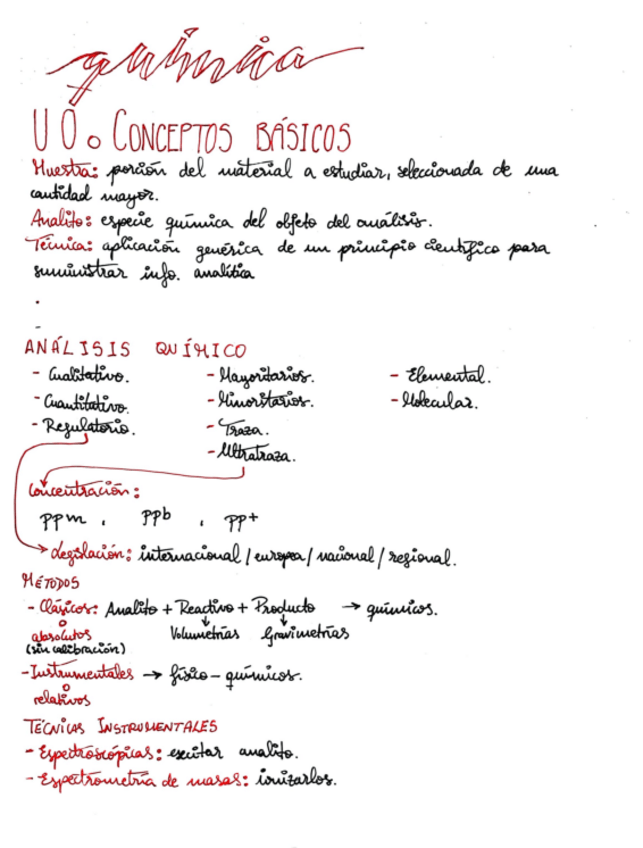 química
U0. CONCEPTOS BÁSICOS
Muestra: porción del material a estudiar, seleccionada de una
cantidad mayor.
Analito: especie química del objeto del análisis.
Técnica: aplicación genérica de un principio científico para
suministrar info. analítica
ANÁLISIS QUÍMICO
- Cualitativo. - Mayoritarios. - Elemental.
- Cuantitativo. - Minoritarios. - Molecular.
- Regulatorio. - Traza.
- Ultratraza.
Concentración:
ppm, ppb, ppt
→ Legislación: internacional / europea / nacional / regional.
MÉTODOS
- Clásicos: Analito + Reactivo + Producto → químicos.
o absolutos Volumetrías Gravimetrías
(sin calibración)
- Instrumentales → físico-químicos.
o relativos
TÉCNICAS INSTRUMENTALES
- Espectroscópicas: excitar analito.
- Espectrometría de masas: ionizarlos.